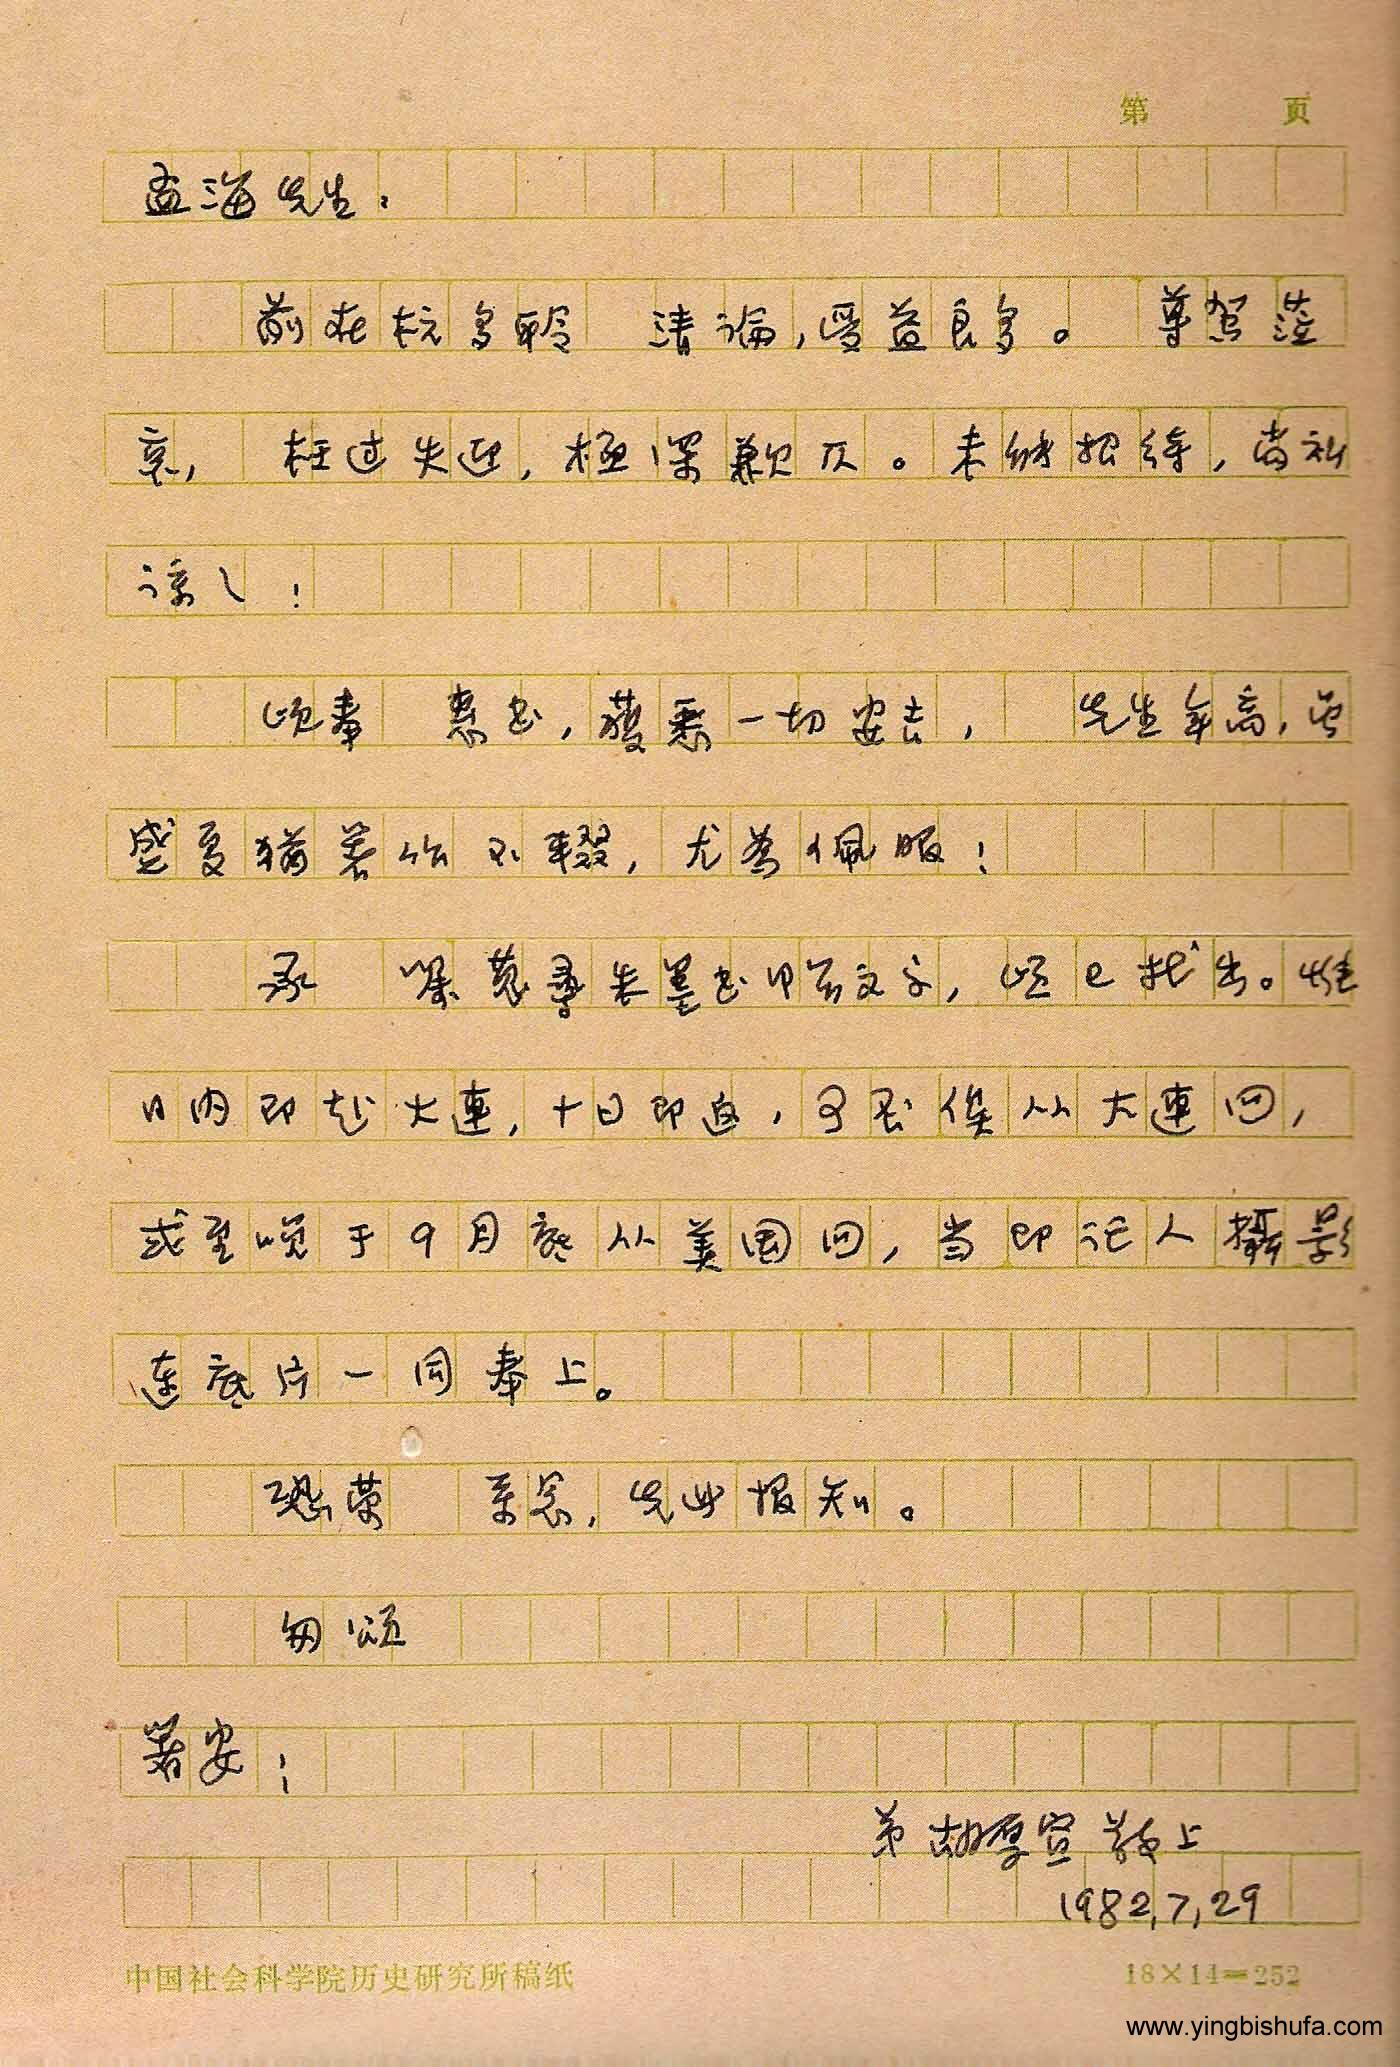 第 页
孟海先生：
前在杭多聆 清论，受益良多。 尊驾莅
京， 枉过失迎，极深歉仄。未能招待，尚祈
谅之！
顷奉 惠书，藉悉一切安吉， 先生年高，当
盛夏犹著作不辍，尤为佩服！
承 嘱觅寻朱墨书甲骨文字，顷已找出。惟
日内即赴大连，十日即返，可否俟从大连回，
或至晚于9月底从美国回，当即记人摄影
连底片一同奉上。
恐劳 系念，先此报知。
匆颂
暑安！
弟胡厚宣敬上
1982,7,29
中国社会科学院历史研究所稿纸
18×14=252
www.yingbishufa.com